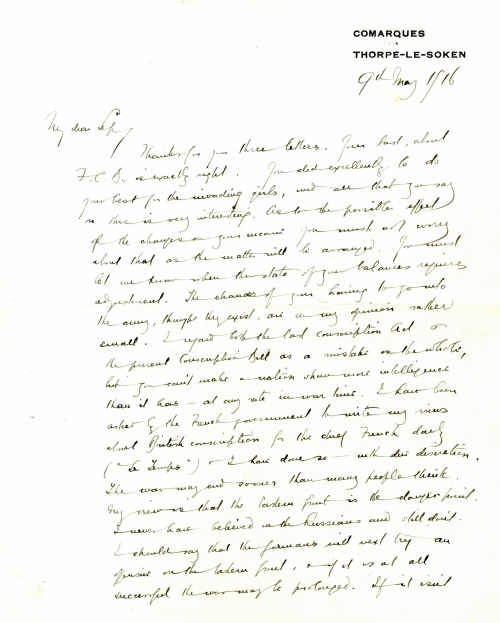 COMARQUES
THORPE-LE-SOKEN
9th May 1916
My dear
Thanks for your three letters. Yours last, about
F.C.B., is exactly right. You did excellently to do
your best for the invading girls, and all that you say
on this is very interesting. As to the possible effect
of the changes on your income you must not worry
about that as the matter will be arranged. You must
let me know when the state of your balances requires
adjustment. The chances of your having to go into
the army, though they exist, are in my opinion rather
small. I regard both the last conscription Act &
the present Conscription Bill as a mistake on the whole,
but you can't make a nation show more intelligence
than it has – at any rate in war time. I have been
asked by the French government to write my views
about British conscription for the chief French daily
("Le Temps") & I have done so – with due discretion.
The war may end sooner than many people think.
My view is that the Eastern front is the danger point.
I never have believed in the Russians and still don't.
I should say that the Germans will next try an
offensive on the Eastern front, & if it is at all
successful the war may be prolonged. If it isn't